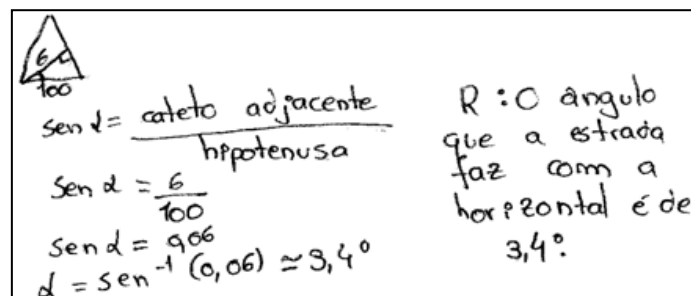 6
100
sen α = cateto adjacente
hipotenusa
sen α = 6
100
sen α = 0,06
α = sen⁻¹ (0,06) ≃ 3,4°
R : O ângulo
que a estrada
faz com a
horizontal é de
3,4°.